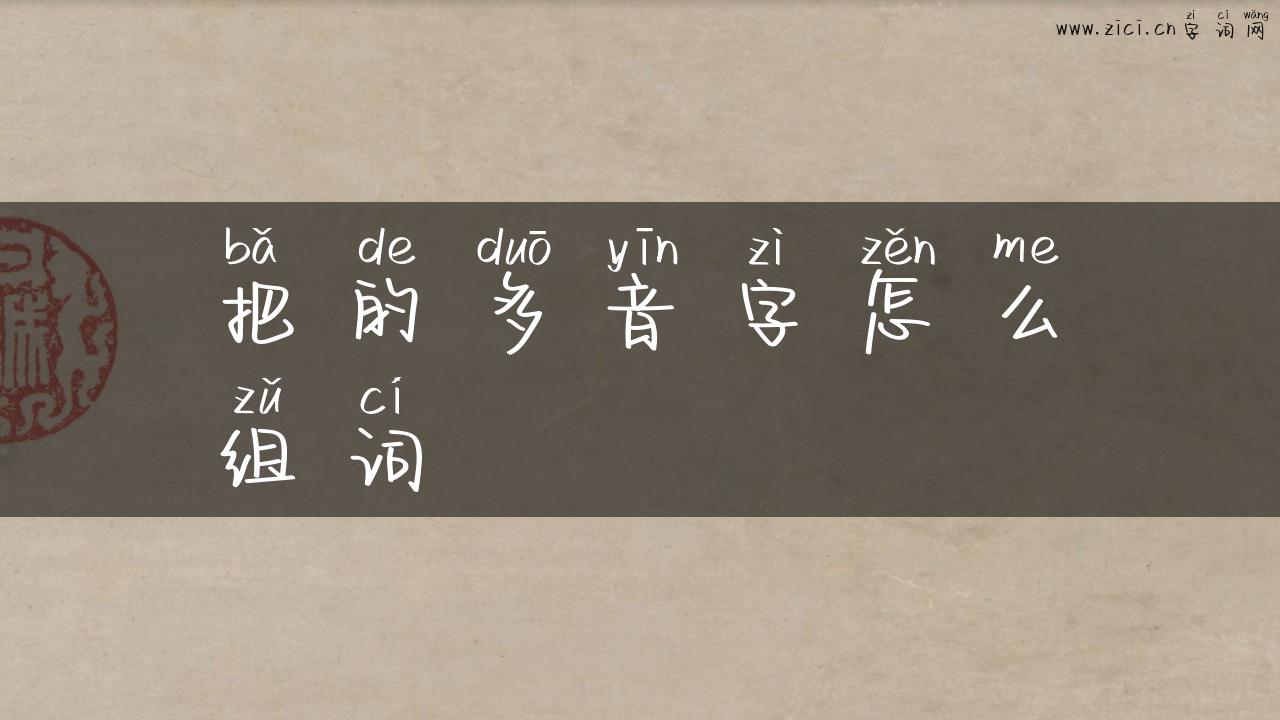 zì cí wǎng
www.zici.cn 字词网
bǎ de duō yīn zì zěn me
把的多音字怎么
zǔ cí
组词